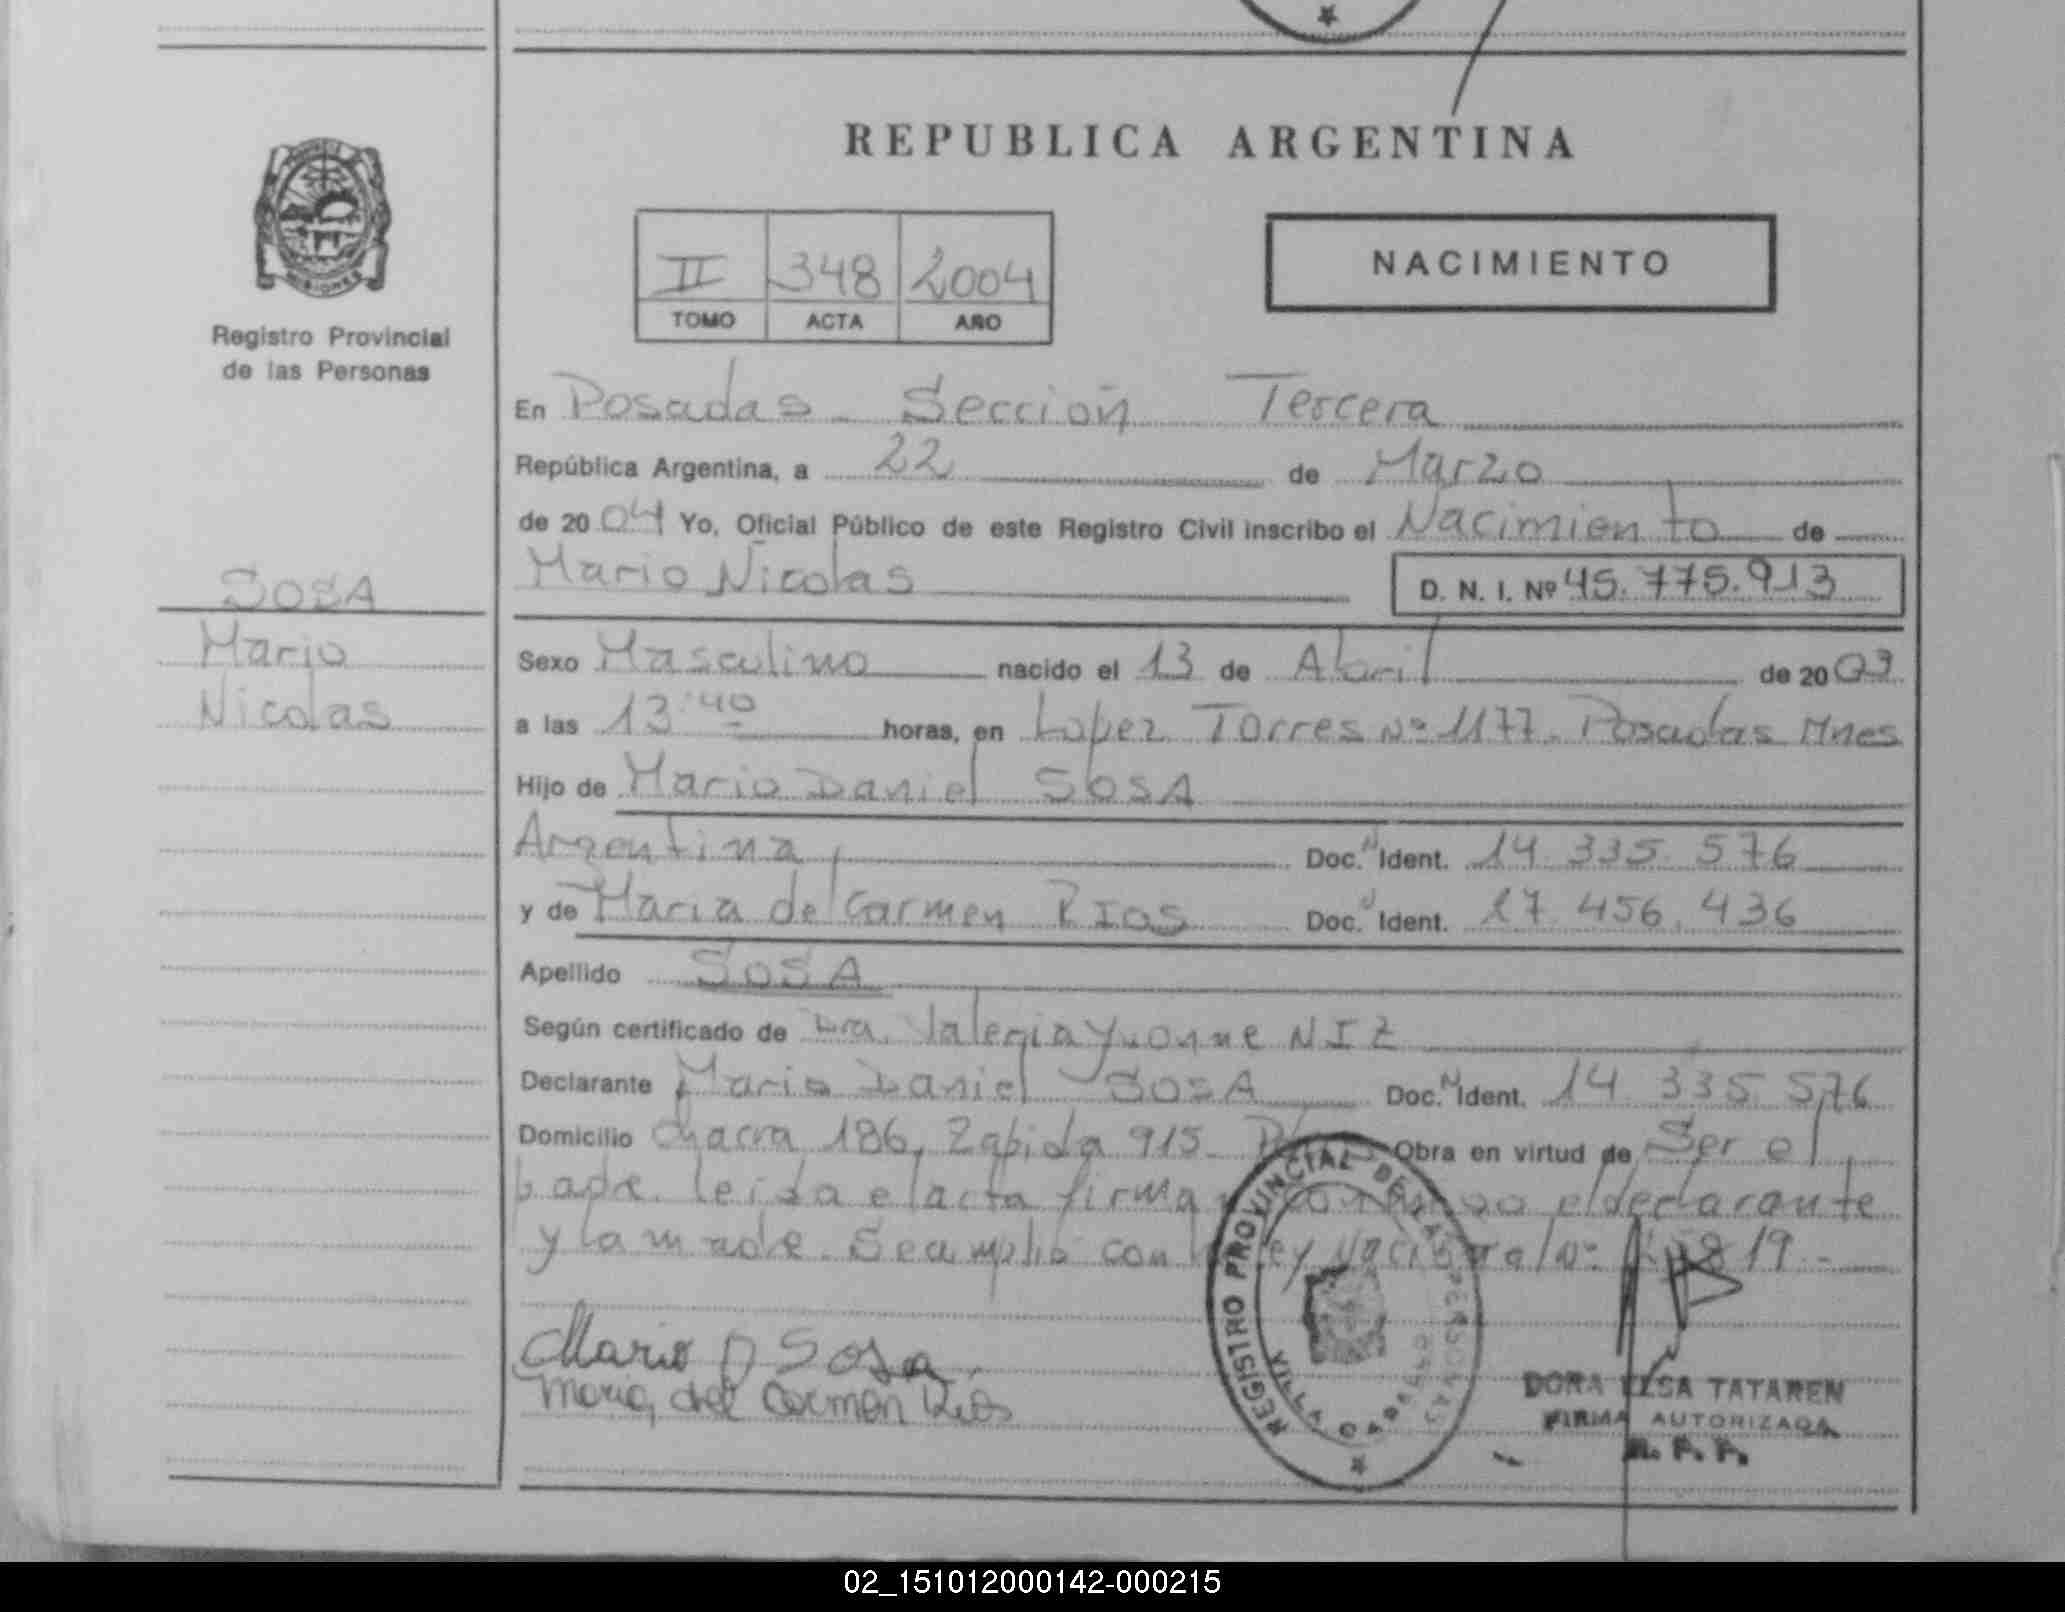 REPUBLICA ARGENTINA
MISIONES
Registro Provincial
de las Personas
II 348 2004
TOMO ACTA AÑO
NACIMIENTO
En Posadas - Sección Tercera
República Argentina, a 22 de Marzo
de 2004 Yo, Oficial Público de este Registro Civil inscribo el Nacimiento de
Mario Nicolas D. N. I. Nº 45.775.913
SOSA
Mario
Nicolas
Sexo Masculino nacido el 13 de Abril de 2003
a las 13:40 horas, en Lopez Torres Nº 1177. Posadas Mnes
Hijo de Mario Daniel SOSA
Argentina, Doc. N Ident. 14.335.576
y de Maria del Carmen RIOS Doc. Ident. 17.456.436
Apellido SOSA
Según certificado de Dra. Valeria Yvonne NIZ
Declarante Mario Daniel SOSA Doc. N Ident. 14.335.576
Domicilio Chacra 186, Zapiola 915- Obra en virtud de Ser el
padre. leida el acta firma el declarante
y la madre. Se amplió con Ley Nacional Nº
Mario D Sosa
Maria del Carmen Rios
REGISTRO PROVINCIAL DE LAS PERSONAS
VILLA
DORA ELSA TATAREN
FIRMA AUTORIZADA
R. P. P.
02_151012000142-000215